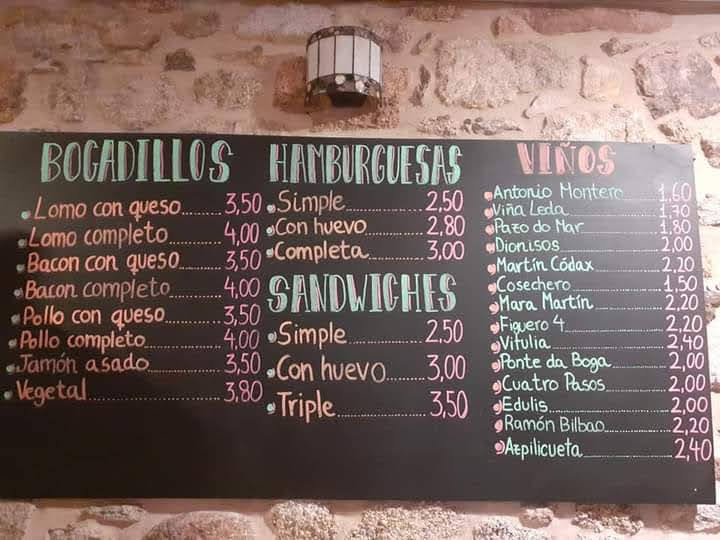 BOCADILLOS
Lomo con queso........ 3,50
Lomo completo........ 4,00
Bacon con queso........ 3,50
Bacon completo........ 4,00
Pollo con queso........ 3,50
Pollo completo........ 4,00
Jamón asado........ 3,50
Vegetal........ 3,80
HAMBURGUESAS
Simple........ 2,50
Con huevo........ 2,80
Completa........ 3,00
SANDWICHES
Simple........ 2,50
Con huevo........ 3,00
Triple........ 3,50
VIÑOS
Antonio Montero........ 1,60
Viña Leda........ 1,70
Pazo do Mar........ 1,80
Dionisos........ 2,00
Martín Códax........ 2,20
Cosechero........ 1,50
Mara Martín........ 2,20
Figuero 4........ 2,20
Vitulia........ 2,40
Ponte da Boga........ 2,00
Cuatro Pasos........ 2,00
Edulis........ 2,00
Ramón Bilbao........ 2,20
Azpilicueta........ 2,40